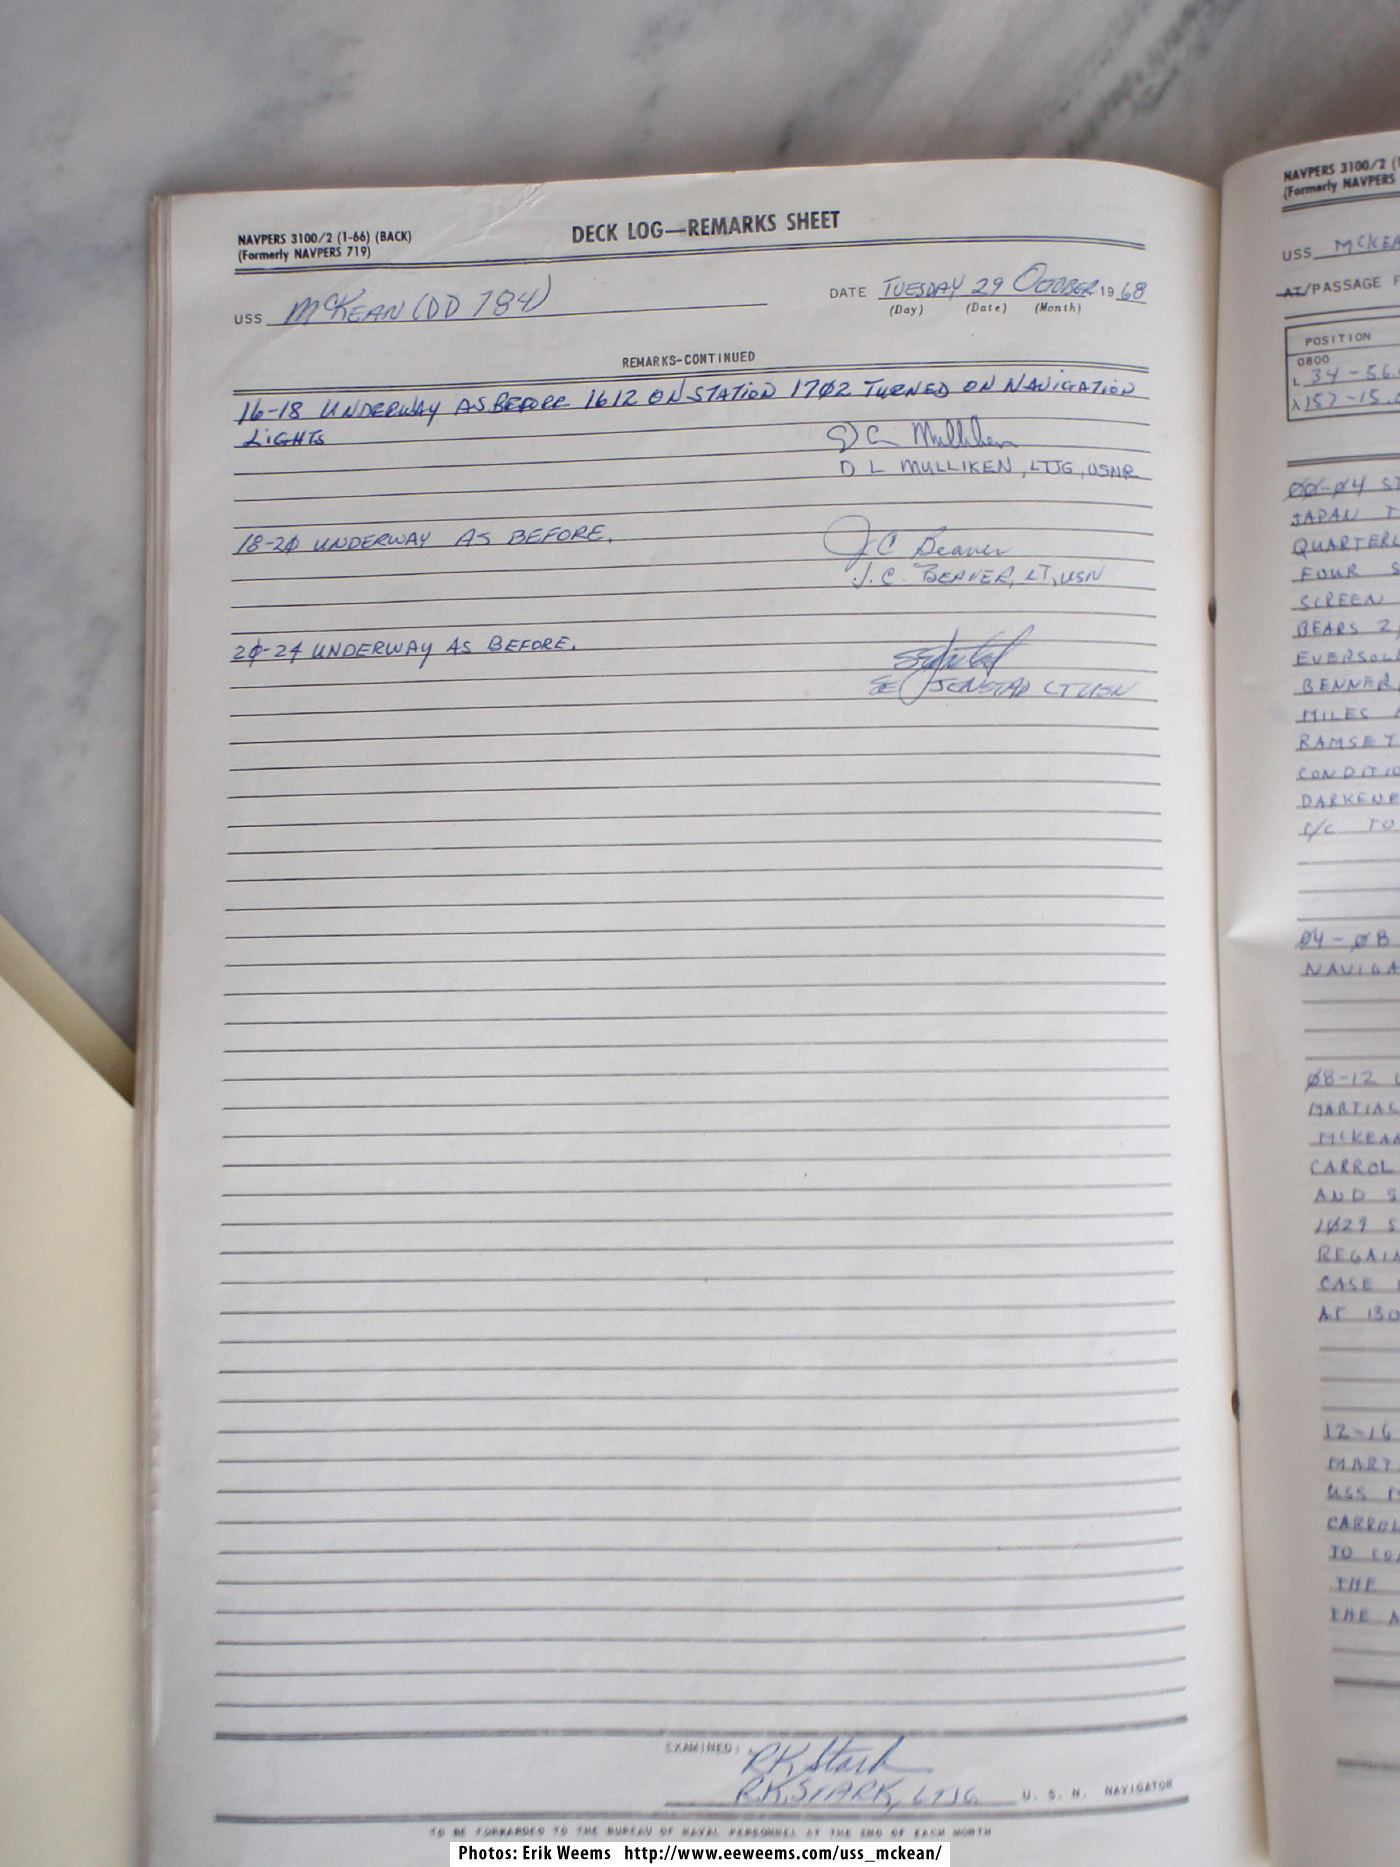 NAVPERS 3100/2 (1-66) (BACK)
(Formerly NAVPERS 719)
DECK LOG—REMARKS SHEET
USS McKEAN (DD 784)
DATE TUESDAY 29 OCTOBER 1968
(Day) (Date) (Month)
REMARKS-CONTINUED
16-18 UNDERWAY AS BEFORE 1612 ON STATION 17Ø2 TURNED ON NAVIGATION
LIGHTS
D L Mulliken
D L MULLIKEN, LTJG, USNR
18-2Ø UNDERWAY AS BEFORE.
J C Beaver
J. C. BEAVER, LT, USN
2Ø-24 UNDERWAY AS BEFORE.
SE JENSTAD LT USN
EXAMINED:
RK Stark
R.K. STARK, LTJG U. S. N. NAVIGATOR
TO BE FORWARDED TO THE BUREAU OF NAVAL PERSONNEL AT THE END OF EACH MONTH
NAVPERS 3100/2
(Formerly NAVPERS
USS McKEA
AT/PASSAGE F
POSITION
0800
L 34-56.
λ 157-15.
ØØ-Ø4 ST
JAPAN T
QUARTERL
FOUR S
SCREEN
BEARS 2
EVERSOL
BENNER,
MILES A
RAMSEY
CONDITIO
DARKENE
C/C TO
Ø4-Ø8
NAVIGA
Ø8-12 U
MARTIAL
McKEAN
CARROL
AND S
1Ø29 S
REGAIN
CASE
AT 130
12-16
MART
USS M
CARROL
TO CO
THE
THE A
Photos: Erik Weems http://www.eeweems.com/uss_mckean/